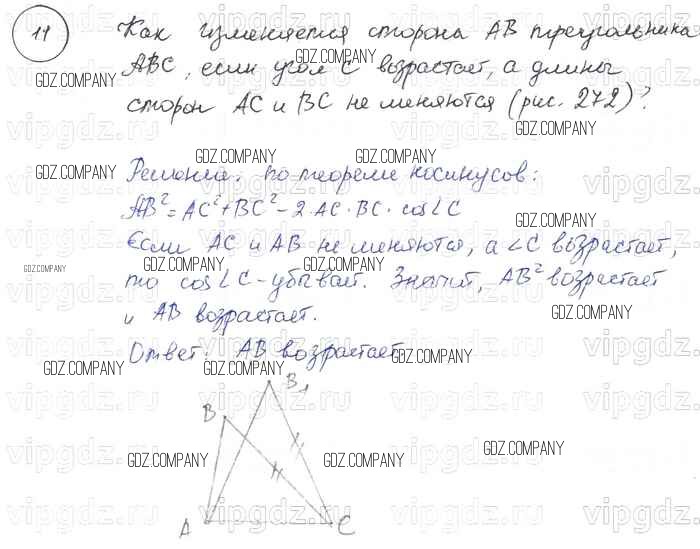 11 Как изменяется сторона AB треугольника
ABC, если угол C возрастает, а длины
сторон AC и BC не меняются (рис. 272)?
Решение. по теореме косинусов:
AB² = AC² + BC² - 2 AC · BC · cos∠C
Если AC и AB не меняются, а ∠C возрастает,
то cos∠C - убывает. Значит, AB² возрастает
и AB возрастает.
Ответ: AB возрастает.
B₁
B
A
C
GDZ.COMPANY
vipgdz.ru